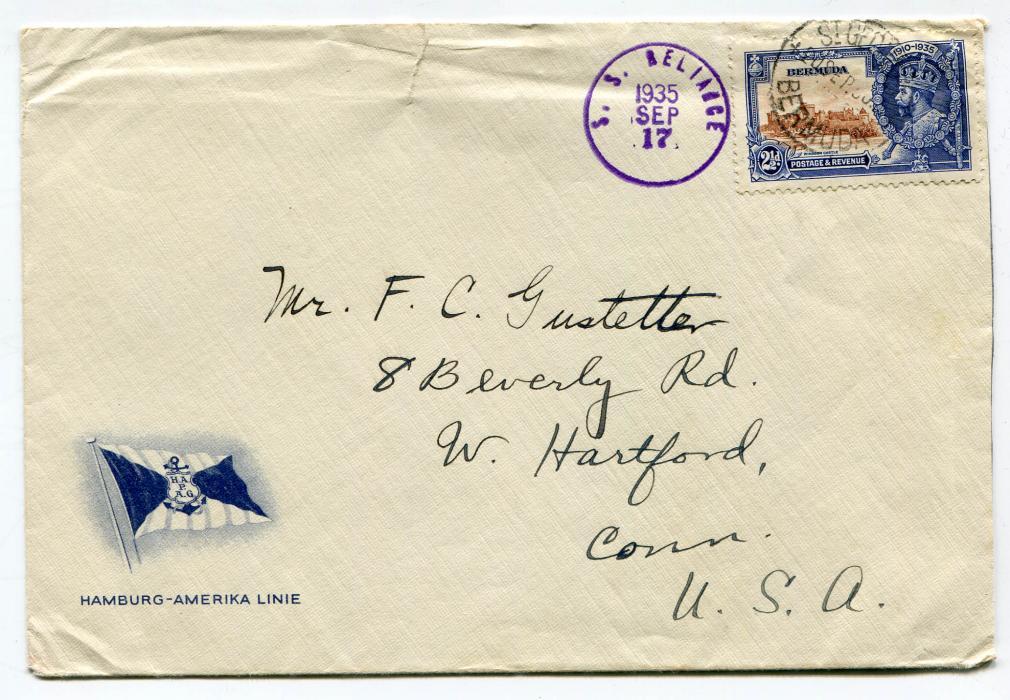 S. S. RELIANCE
1935
SEP
17
ST. GE
BERMUDA
1910-1935
BERMUDA
WINDSOR CASTLE
2½d
POSTAGE & REVENUE
Mr. F. C. Gustetter
8 Beverly Rd.
W. Hartford,
Conn.
U. S. A.
H.A.
P.
A.G
HAMBURG-AMERIKA LINIE